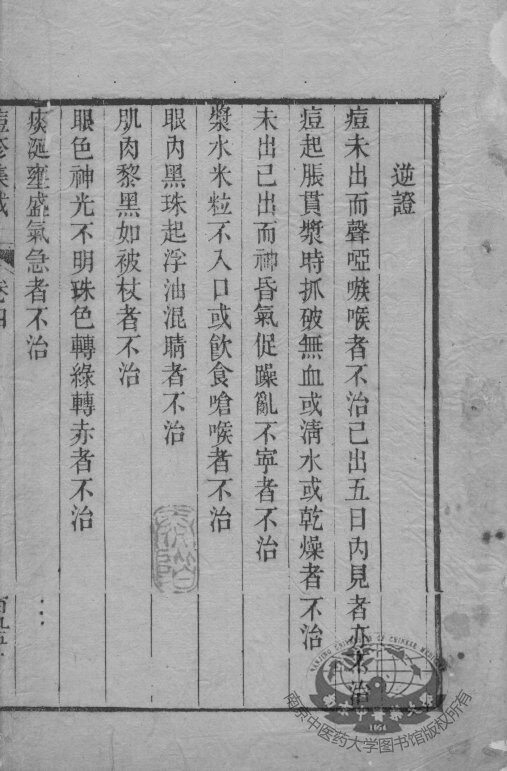 逆證
痘未出而聲啞嗾喉者不治已出五日內見者亦不治
痘起脹貫漿時抓破無血或清水或乾燥者不治
未出已出而神昏氣促躁亂不寧者不治
漿水米粒不入口或飲食嗆喉者不治
眼內黑珠起浮油混睛者不治
肌肉黎黑如被杖者不治
眼色神光不明珠色轉綠轉赤者不治
痰涎壅盛氣急者不治
痘疹集成 卷四
NANJING UNIVERSITY OF CHINESE MEDICINE
1954
南京中医药大学图书馆版权所有